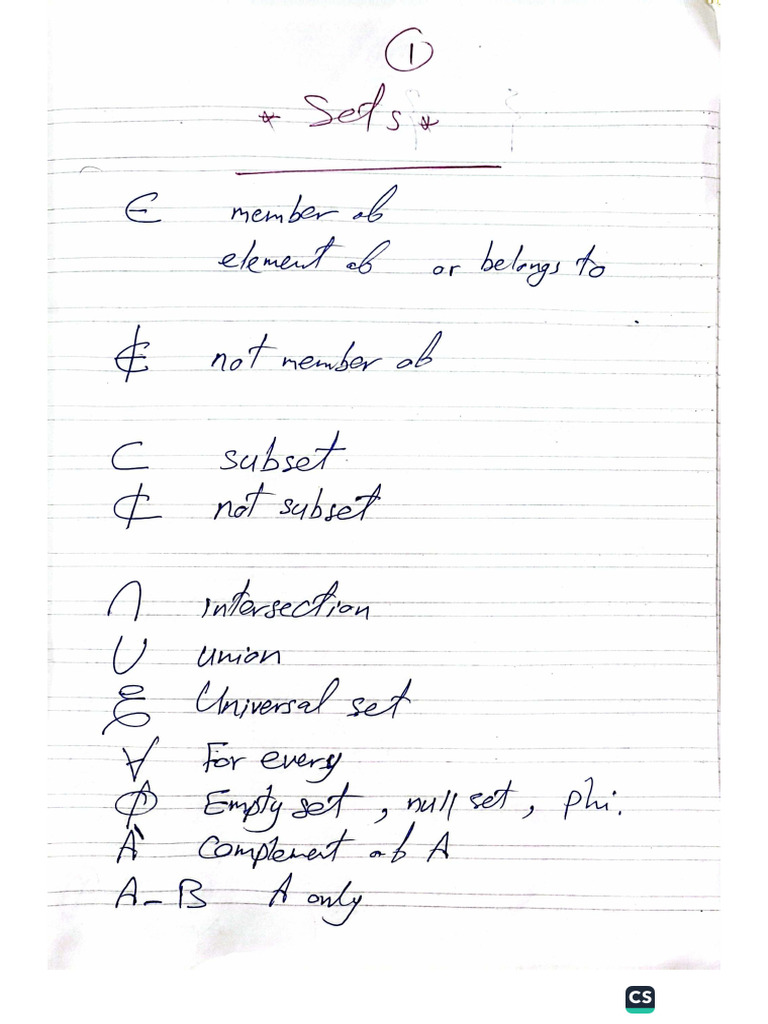 1
* Sets *
∈ member of
element of or belongs to
∉ not member of
⊂ subset
⊄ not subset
∩ intersection
∪ union
ξ Universal set
∀ For every
∅ Empty set, null set, phi.
A` Complement of A
A - B A only
CS